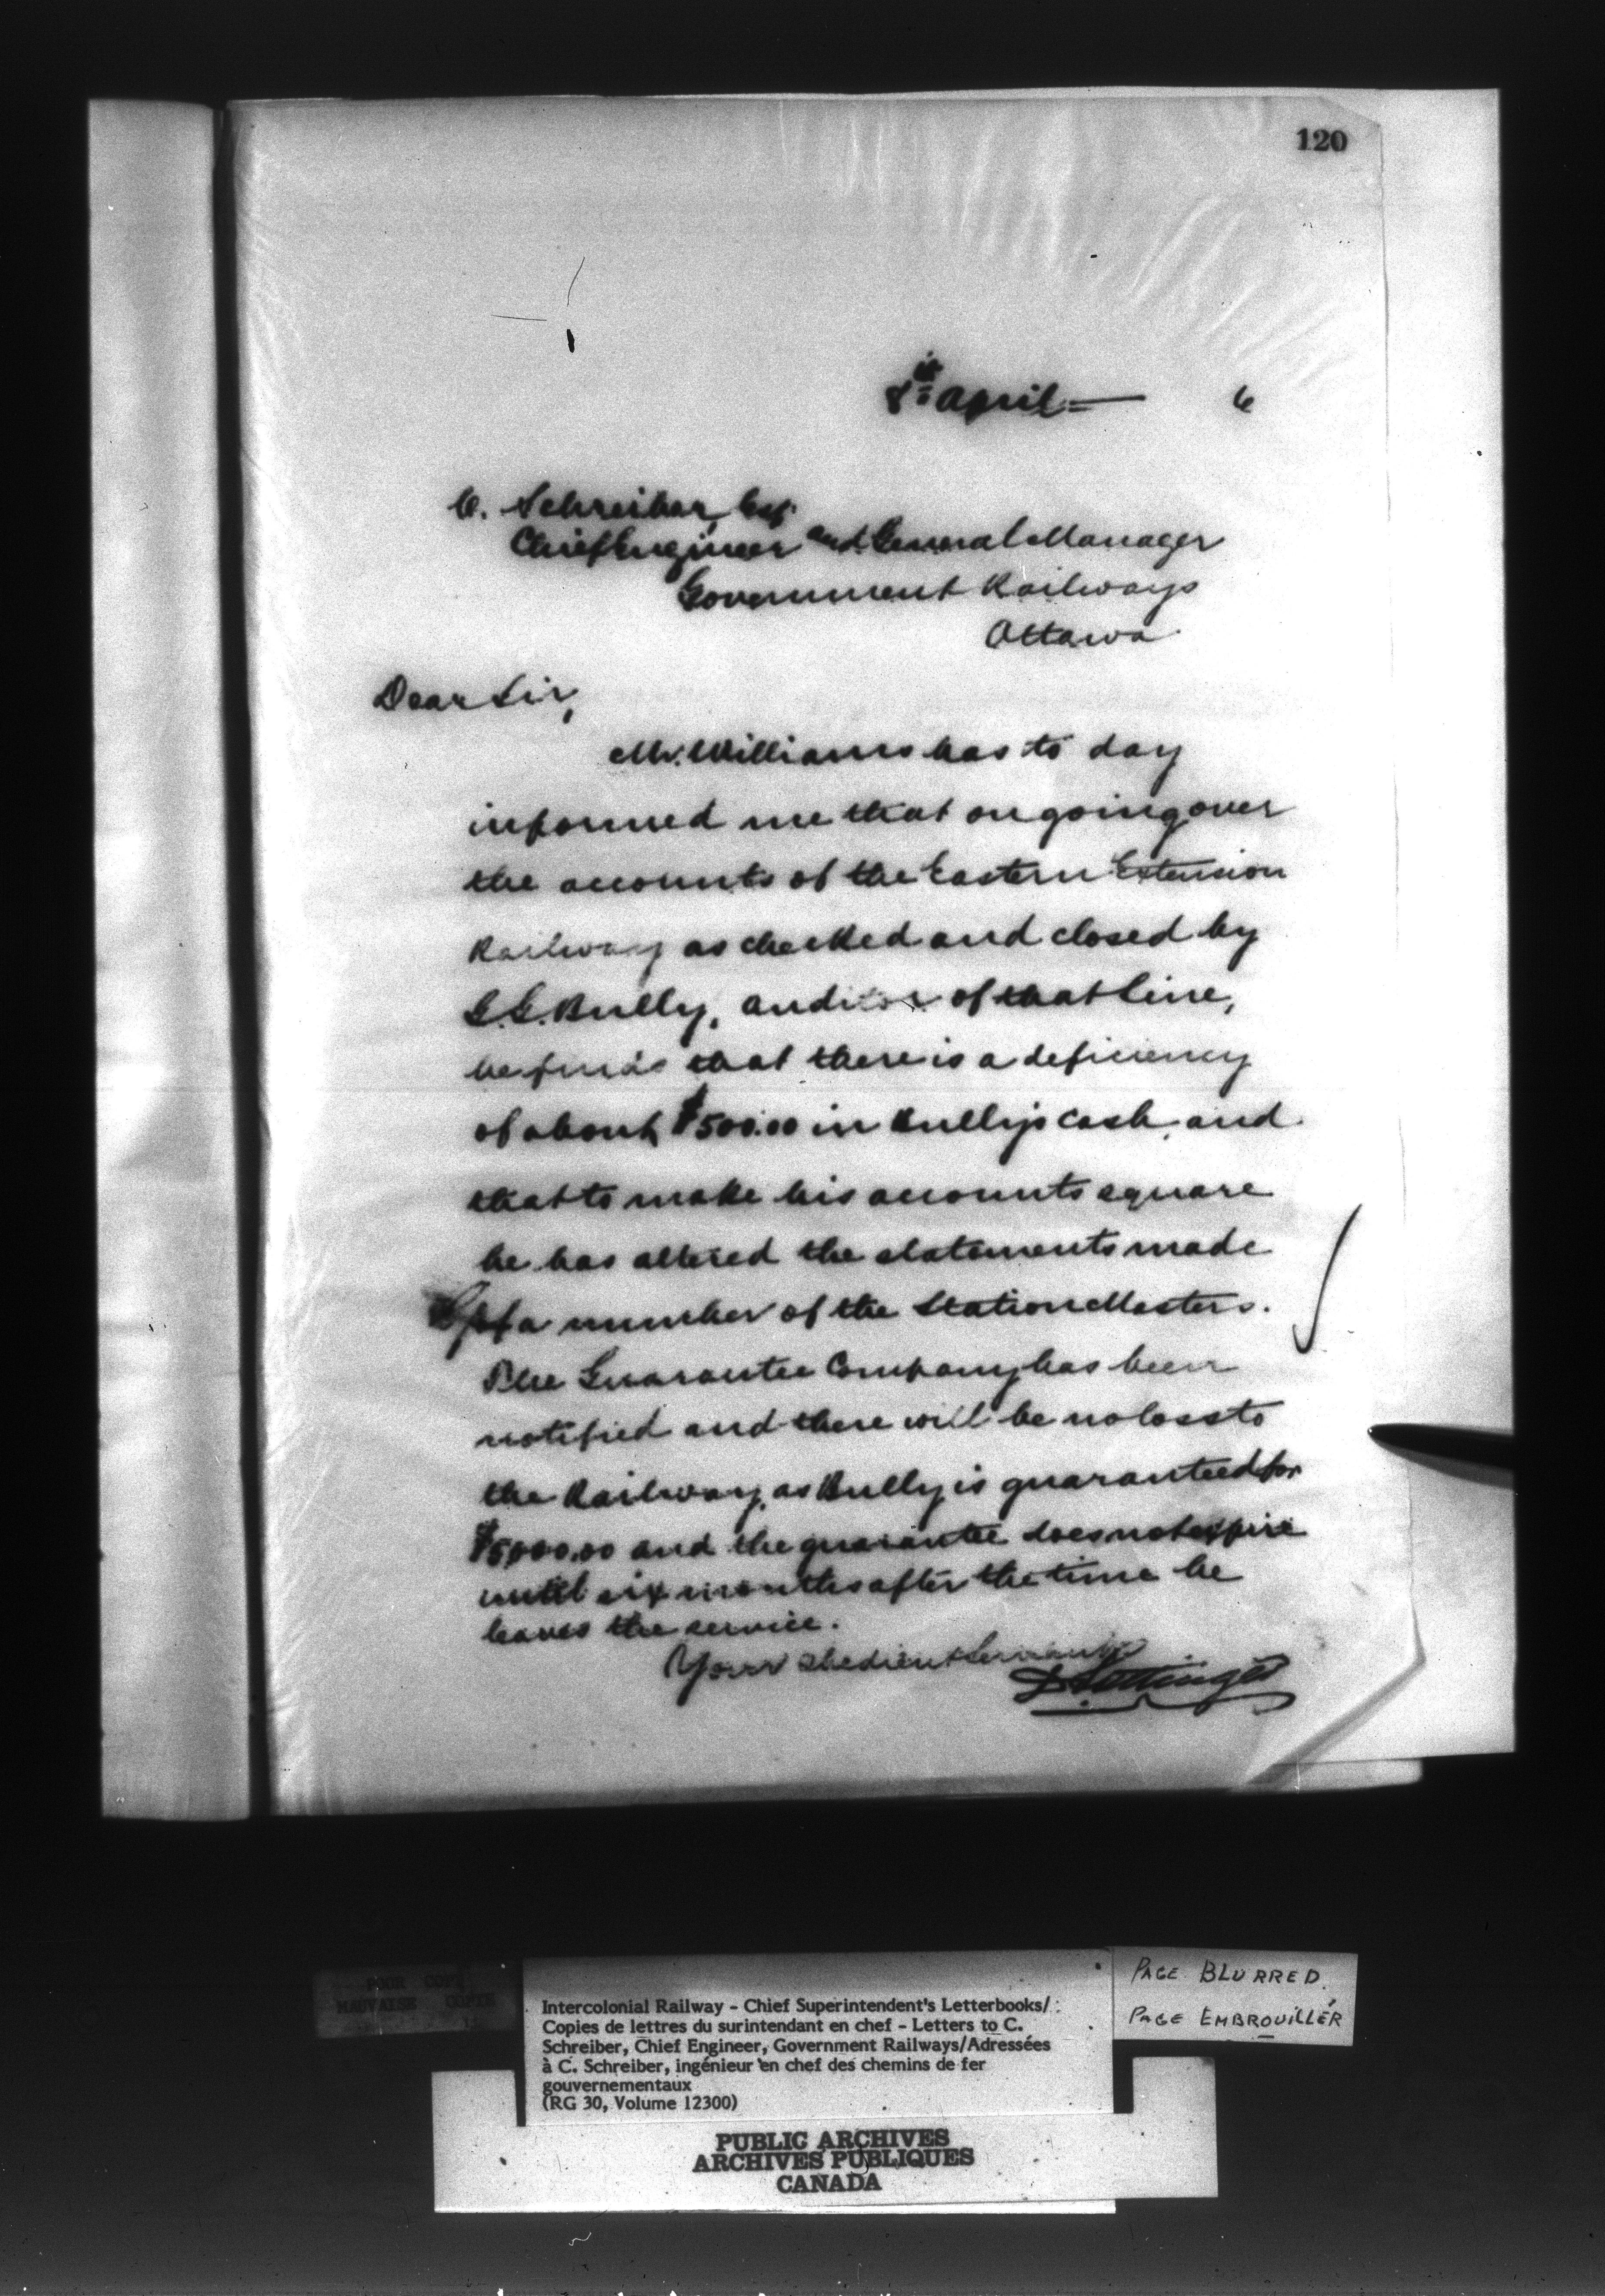 120
8th April 6
C. Schreiber, Esq
Chief Engineer and General Manager
Government Railways
Ottawa
Dear Sir,
Mr. Williams has to day
informed me that on going over
the accounts of the Eastern Extension
Railway as checked and closed by
G.G. Bully, auditor of that line,
he finds that there is a deficiency
of about $500.00 in Bully's cash, and
that to make his accounts square
he has altered the statements made
of a number of the Station Masters.
The Guarantee Company has been
notified and there will be no loss to
the Railway, as Bully is guaranteed for
$5,000.00 and the guarantee does not expire
until six months after the time he
leaves the service.
Your obedient Servant
D Pottinger
POOR COPY
MAUVAISE COPIE
Intercolonial Railway - Chief Superintendent's Letterbooks/
Copies de lettres du surintendant en chef - Letters to C.
Schreiber, Chief Engineer, Government Railways/Adressées
à C. Schreiber, ingénieur en chef des chemins de fer
gouvernementaux
(RG 30, Volume 12300)
PAGE BLURRED
PAGE EMBROUILLÉR
PUBLIC ARCHIVES
ARCHIVES PUBLIQUES
CANADA